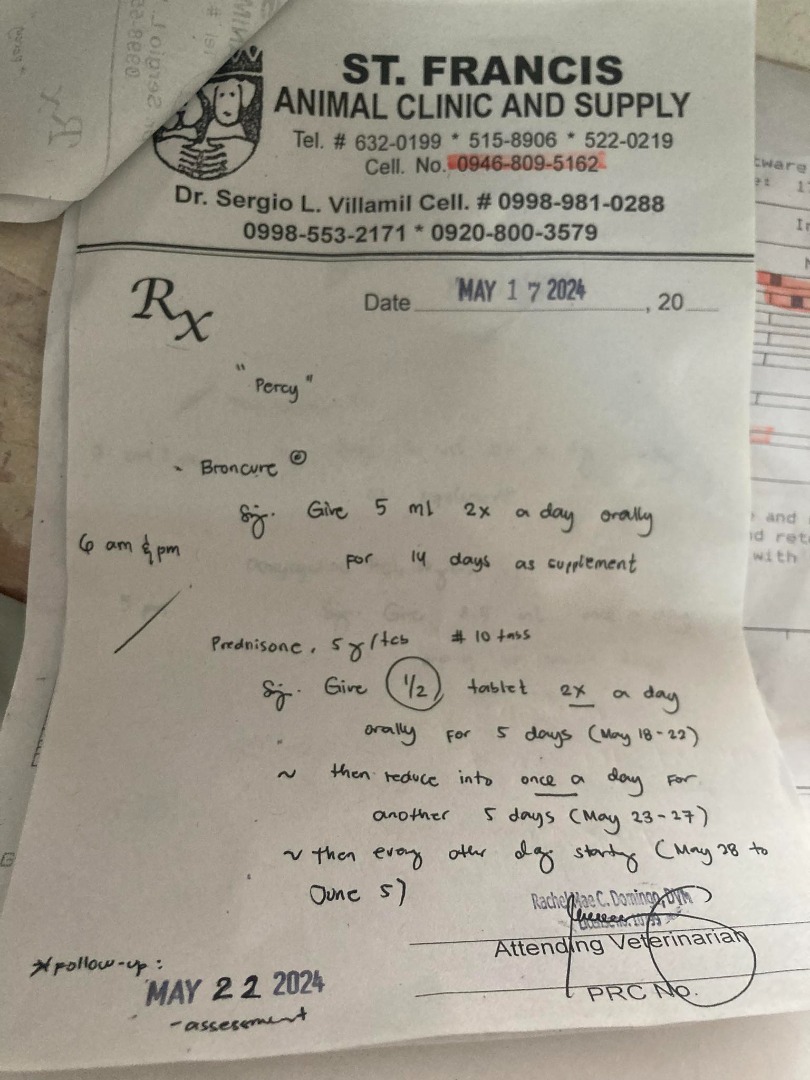 ST. FRANCIS
ANIMAL CLINIC AND SUPPLY
Tel. # 632-0199 * 515-8906 * 522-0219
Cell. No. 0946-809-5162
Dr. Sergio L. Villamil Cell. # 0998-981-0288
0998-553-2171 * 0920-800-3579
Rx
Date MAY 17 2024, 20
"Percy"
- Broncure
Sig. Give 5 ml 2x a day orally
6 am & pm
for 14 days as supplement
Prednisone, 5 /tab # 10 tabs
Sig. Give 1/2 tablet 2x a day
orally for 5 days (May 18-22)
~ then reduce into once a day for
another 5 days (May 23-27)
~ then every other day starting (May 28 to
June 5)
Rachel Mae C. Domingo, DVM
Attending Veterinarian
PRC No.
*follow-up:
MAY 22 2024
-assessment
and
with